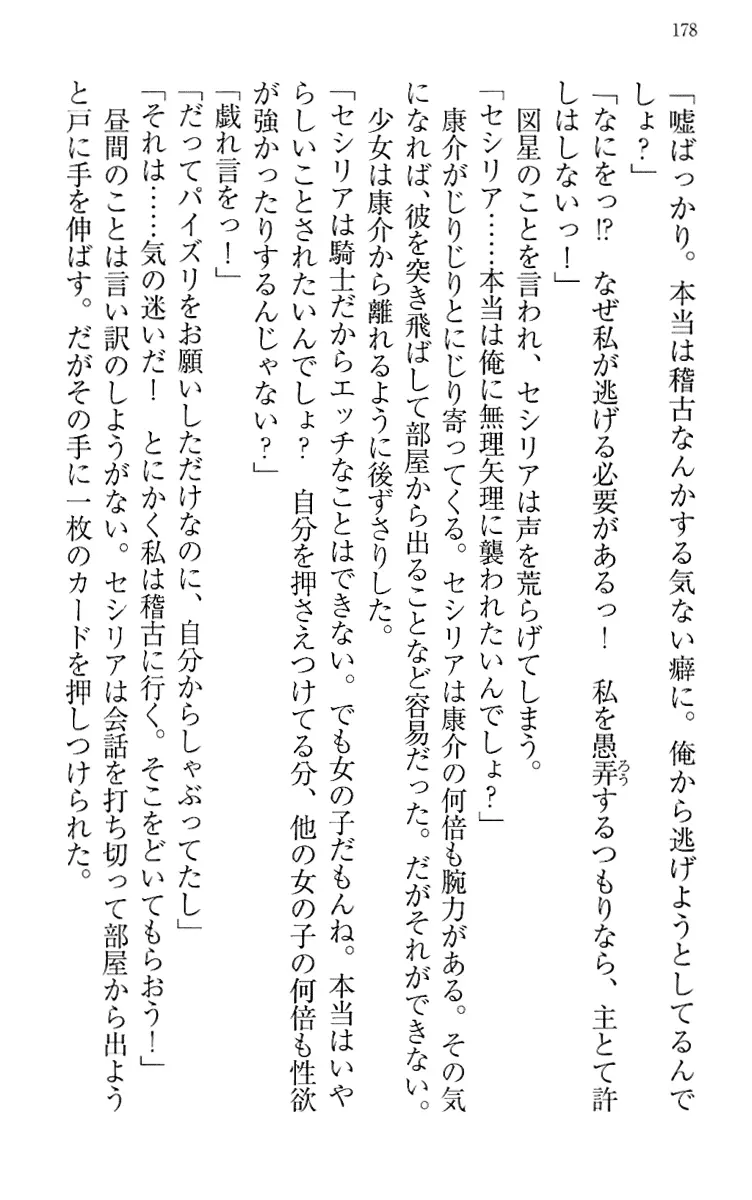 178
「嘘ばっかり。本当は稽古なんかする気ない癖に。俺から逃げようとしてるんで
しょ？」
「なにをっ!?　なぜ私が逃げる必要があるっ！　私を愚弄するつもりなら、主とて許
しはしないっ！」
図星のことを言われ、セシリアは声を荒らげてしまう。
「セシリア……本当は俺に無理矢理に襲われたいんでしょ？」
康介がじりじりとにじり寄ってくる。セシリアは康介の何倍も腕力がある。その気
になれば、彼を突き飛ばして部屋から出ることなど容易だった。だがそれができない。
少女は康介から離れるように後ずさりした。
「セシリアは騎士だからエッチなことはできない。でも女の子だもんね。本当はいや
らしいことされたいんでしょ？　自分を押さえつけてる分、他の女の子の何倍も性欲
が強かったりするんじゃない？」
「戯れ言をっ！」
「だってパイズリをお願いしただけなのに、自分からしゃぶってたし」
「それは……気の迷いだ！　とにかく私は稽古に行く。そこをどいてもらおう！」
昼間のことは言い訳のしようがない。セシリアは会話を打ち切って部屋から出よう
と戸に手を伸ばす。だがその手に一枚のカードを押しつけられた。